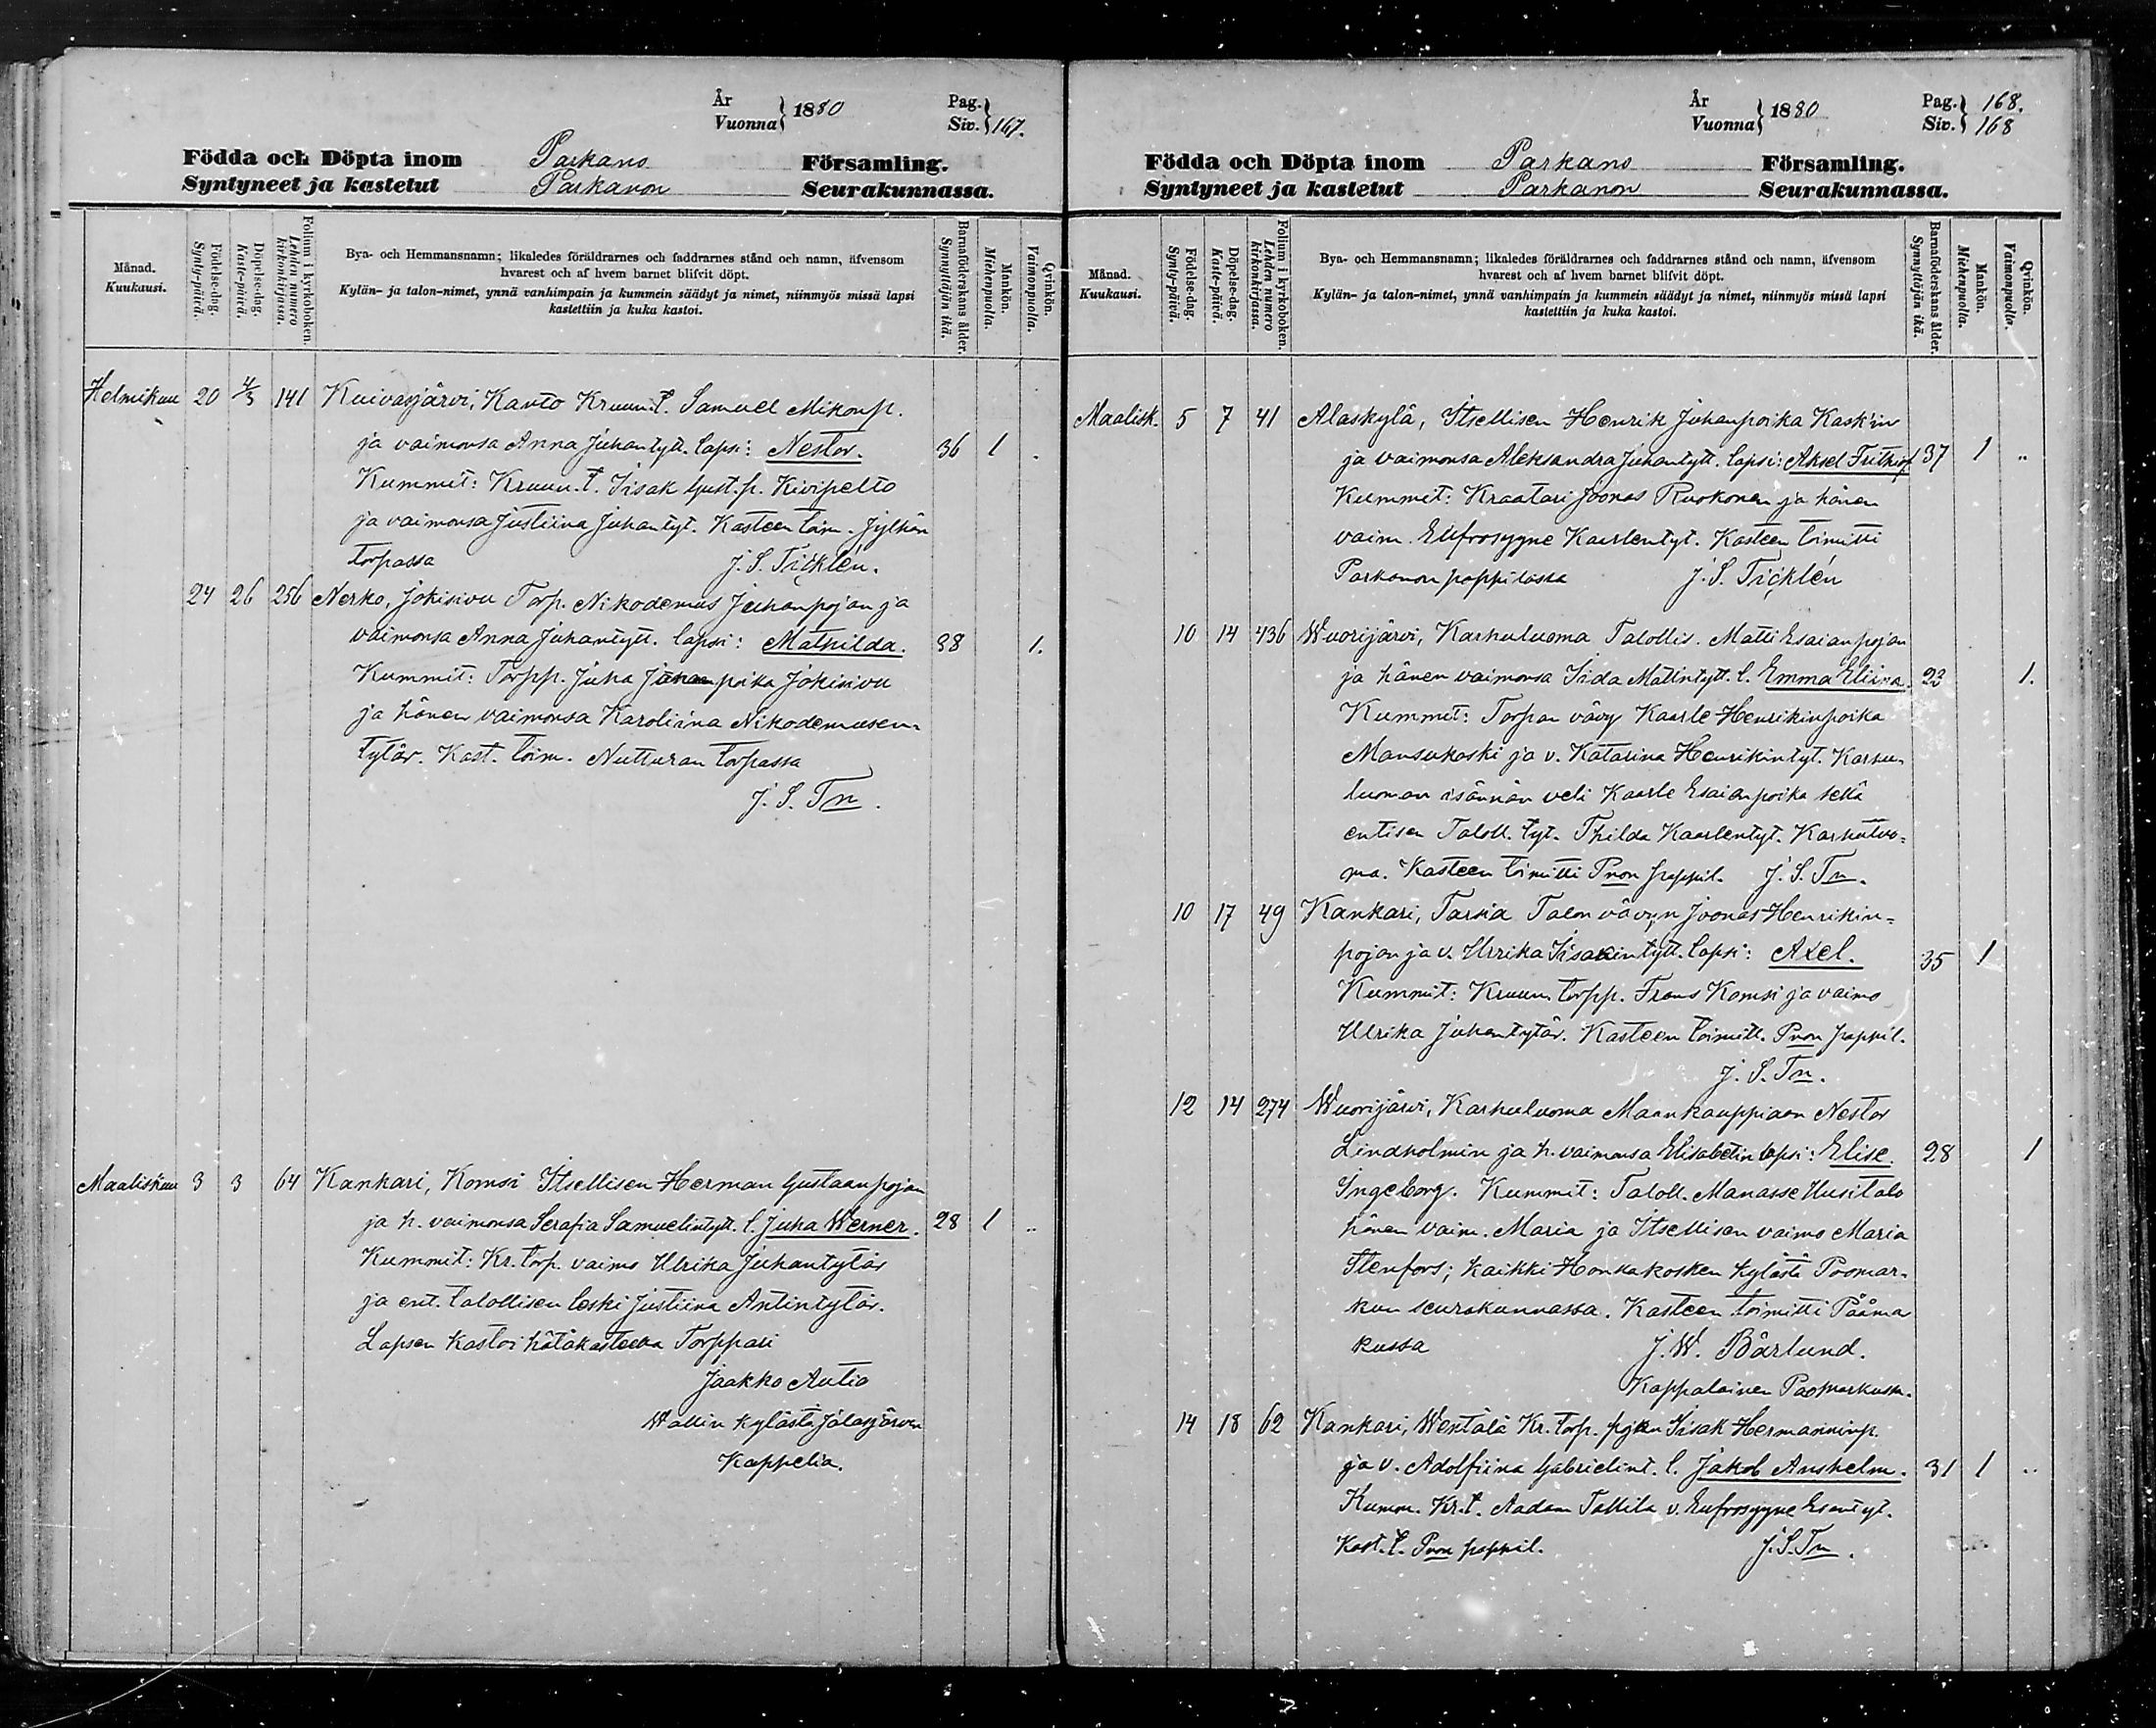 År
Vuonna } 1880
Pag.
Siv. } 167.
Födda och Döpta inom Parkano Församling.
Syntyneet ja kastetut Parkanon Seurakunnassa.
Månad.
Kuukausi.
Födelse-dag.
Synty-päivä.
Döpelse-dag.
Kaste-päivä.
Folium i kyrkoboken.
Lehden numero
kirkonkirjassa.
Bya- och Hemmansnamn; likaledes föräldrarnes och faddrarnes stånd och namn, äfvensom
hvarest och af hvem barnet blifvit döpt.
Kylän- ja talon-nimet, ynnä vanhimpain ja kummein säädyt ja nimet, niinmyös missä lapsi
kastettiin ja kuka kastoi.
Barnaföderskans ålder.
Synnyttäjän ikä.
Mankön.
Miehenpuolta.
Qvinkön.
Vaimonpuolta.
Helmikuu 20 4/3 141 Kuivasjärvi, Kanto Kruun.t. Samuel Mikonp.
ja vaimonsa Anna Juhantytt. lapsi: Nestor. 36 1
Kummit: Kruun.t. Iisak Gust.p. Kivipelto
ja vaimonsa Justiina Juhantyt. Kasteen toim. Jylhän
torpassa J. S. Ticklén.
24 26 256 Nerko, Jokisivu Torp. Nikodemus Juhanpojan ja
vaimonsa Anna Juhantytt. lapsi: Mathilda. 38 1.
Kummit: Torpp. Juha Juhanpoika Jokisivu
ja hänen vaimonsa Karoliina Nikodemusen-
tytär. Kast. toim. Nutturan torpassa
J. S. Tn.
Maaliskuu 3 3 64 Kankari, Komsi Itsellisen Herman Gustaanpojan
ja h. vaimonsa Serafia Samuelintyt. l. Juha Werner. 28 1 ..
Kummit: Kr. torp. vaimo Ulrika Juhantytär
ja ent. talollisen leski Justiina Antintytär.
Lapsen kastoi hätäkasteena Torppari
Jaakko Autio
Wallin kylästä Jalasjärven
Kappelia.
År
Vuonna } 1880
Pag. } 168.
Siv. } 168
Födda och Döpta inom Parkano Församling.
Syntyneet ja kastetut Parkanon Seurakunnassa.
Månad.
Kuukausi.
Födelse-dag.
Synty-päivä.
Döpelse-dag.
Kaste-päivä.
Folium i kyrkoboken.
Lehden numero
kirkonkirjassa.
Bya- och Hemmansnamn; likaledes föräldrarnes och faddrarnes stånd och namn, äfvensom
hvarest och af hvem barnet blifvit döpt.
Kylän- ja talon-nimet, ynnä vanhimpain ja kummein säädyt ja nimet, niinmyös missä lapsi
kastettiin ja kuka kastoi.
Barnaföderskans ålder.
Synnyttäjän ikä.
Mankön.
Miehenpuolta.
Qvinkön.
Vaimonpuolta.
Maalisk. 5 7 41 Alaskylä, Itsellisen Henrik Juhanpoika Kask'in
ja vaimonsa Aleksandra Juhantytt. lapsi: Aksel Frithiof 37 1 ..
Kummit: Kraatari Joonas Ruokonen ja hänen
vaim. Eufrosyyne Kaarlentyt. Kasteen toimitti
Parkanon pappilassa J. S. Ticklén
10 14 436 Wuorijärvi, Karhuluoma Talollis. Matti Esaianpojan
ja hänen vaimonsa Iida Matintytt. l. Emma Eliina. 23 1.
Kummit: Torpan vävy Kaarle Henrikinpoika
Mansukoski ja v. Katarina Henrikintyt. Karhu-
luoman isännän veli Kaarle Esaianpoika sekä
entisen Taloll. tyt. Thilda Kaarlentyt. Karhuluo-
ma. Kasteen toimitti Pnon pappil. J. S. Tn.
10 17 49 Kankari, Tarsia Talon vävyn Joonas Henrikin-
pojan ja v. Ulrika Iisakintytt. lapsi: Axel. 35 1
Kummit: Kruun. torpp. Frans Komsi ja vaimo
Ulrika Juhantytär. Kasteen toimitt. Pnon pappil.
J. S. Tn.
12 14 274 Wuorijärvi, Karhuluoma Maankauppiaan Nestor
Lindholmin ja h. vaimonsa Elisabetin lapsi: Elise 28 1
Ingeborg. Kummit: Taloll. Manasse Uusitalo
hänen vaim. Maria ja Itsellisen vaimo Maria
Stenfors; kaikki Honkakosken kylästä Poomar-
kun seurakunnassa. Kasteen toimitti Pååma
kussa J. W. Bärlund.
Kappalainen Paomarkussa.
14 18 62 Kankari, Wentälä Kr. torp. pojan Iisak Hermanninp.
ja v. Adolfiina Gabrielint. l. Jakob Anshelm. 31 1 ..
Kumm. Kr.t. Aadam Tallila v. Eufrosyyne Esantyt.
Kast. t. Pnon pappil. J. S. Tn.